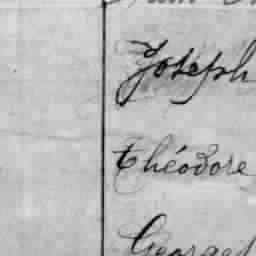 Joseph
Théodore
Georges